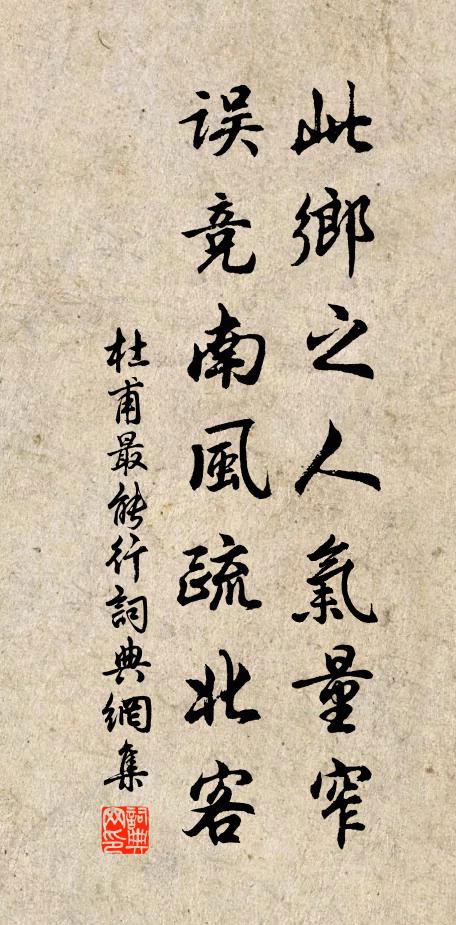 此鄉之人氣量窄
误竞南風疏北客
杜甫最能行詞典網集
詞典网印